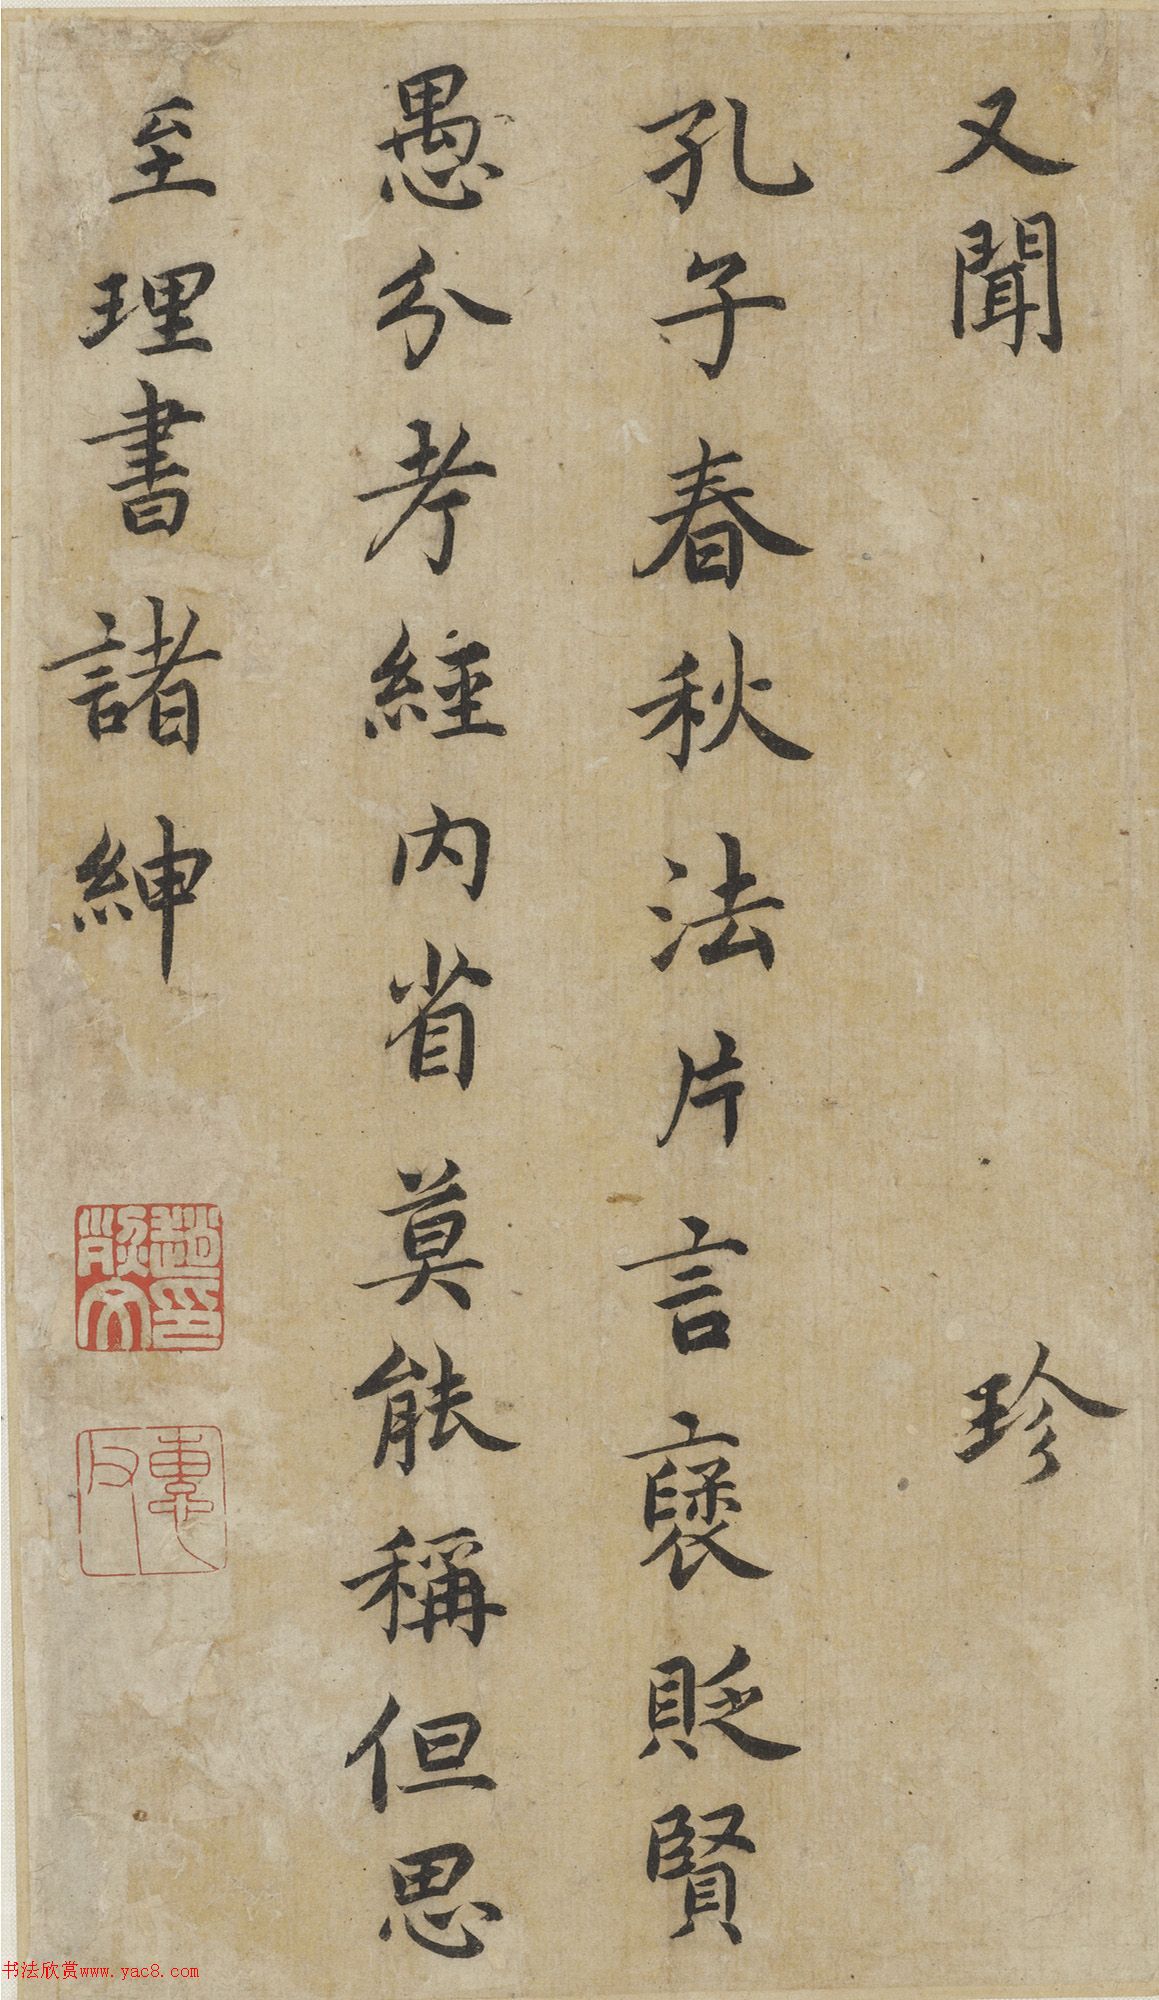 又聞 珍
孔子春秋法片言褒貶賢
愚分考經内省莫能稱但思
至理書諸紳
书法欣赏www.yac8.com